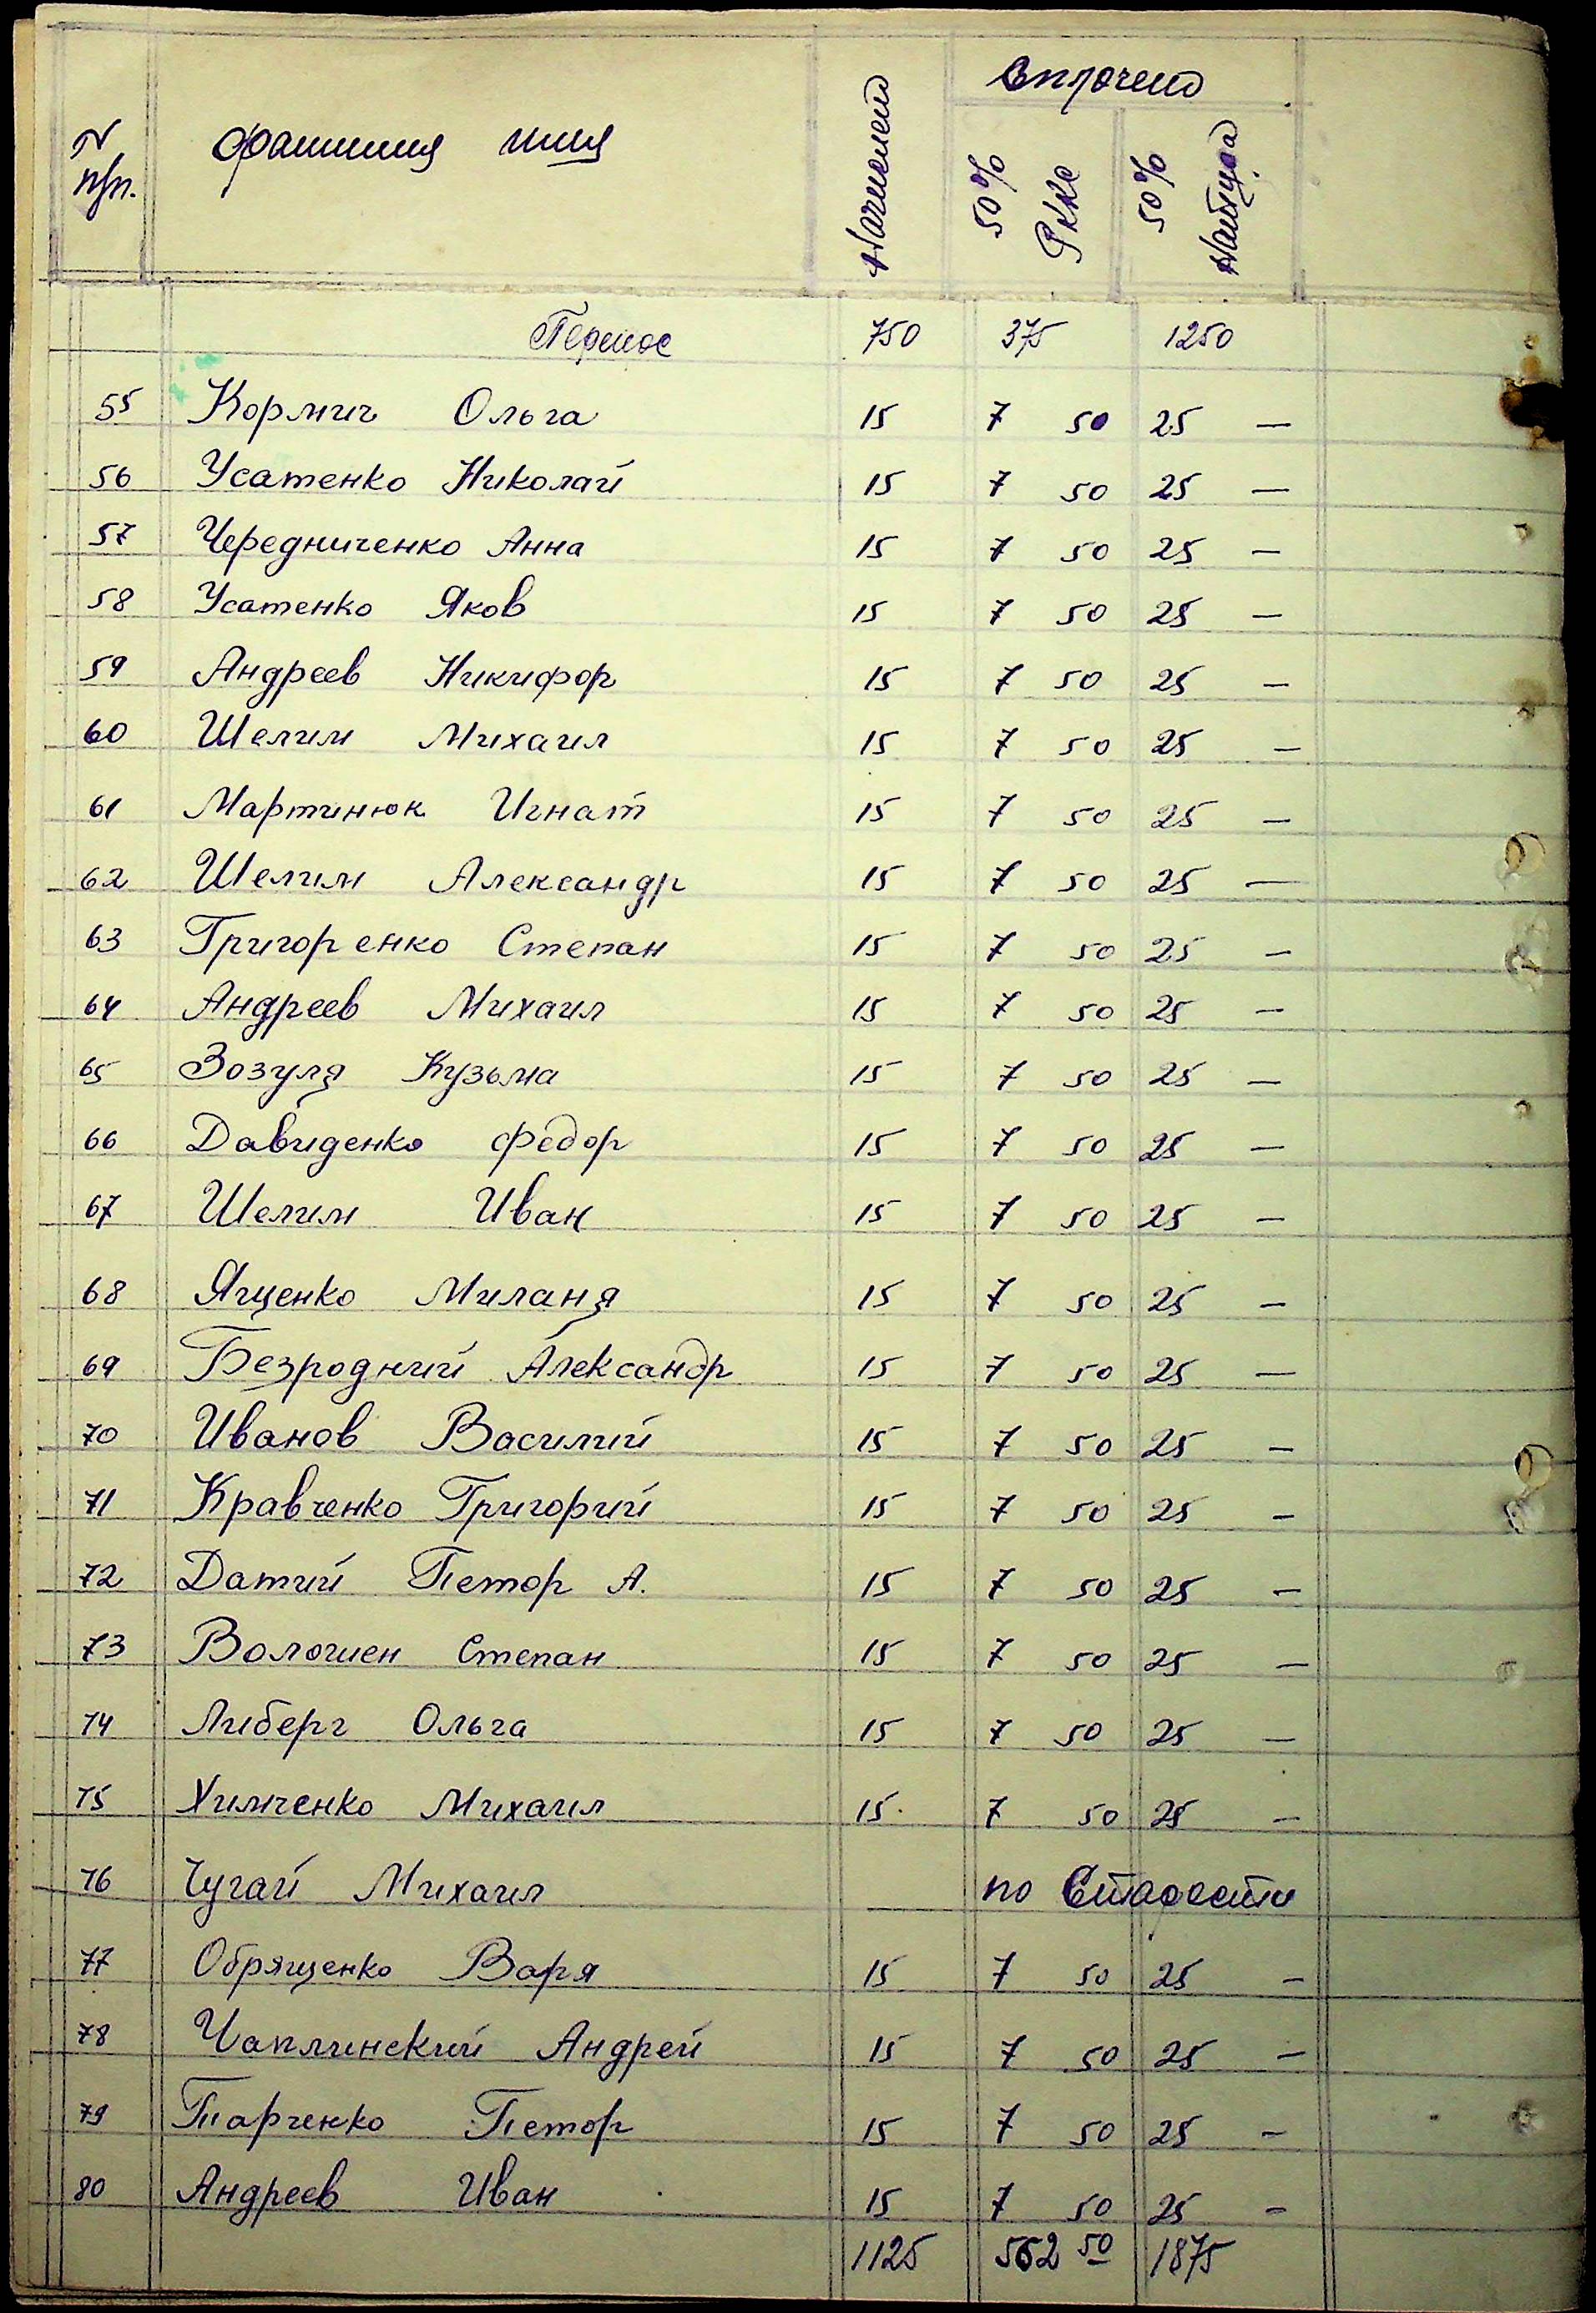 N п/п. фамилия имя Начислено вплочено
50% РККС 50% Натурой
Перенос 750 375 1250
55 Кормич Ольга 15 7 50 25 —
56 Усатенко Николай 15 7 50 25 —
57 Чередниченко Анна 15 7 50 25 —
58 Усатенко Яков 15 7 50 25 —
59 Андреев Никифор 15 7 50 25 —
60 Шелим Михаил 15 7 50 25 —
61 Мартинюк Игнат 15 7 50 25 —
62 Шелим Александр 15 7 50 25 —
63 Григоренко Степан 15 7 50 25 —
64 Андреев Михаил 15 7 50 25 —
65 Зозуля Кузьма 15 7 50 25 —
66 Давиденко Федор 15 7 50 25 —
67 Шелим Иван 15 7 50 25 —
68 Ященко Миланя 15 7 50 25 —
69 Безродний Александр 15 7 50 25 —
70 Иванов Василий 15 7 50 25 —
71 Кравченко Григорий 15 7 50 25 —
72 Датий Петор А. 15 7 50 25 —
73 Волошен Степан 15 7 50 25 —
74 Либерг Ольга 15 7 50 25 —
75 Химченко Михаил 15 7 50 25 —
76 Чугай Михаил — по Старости
77 Обрященко Варя 15 7 50 25 —
78 Чаплинский Андрей 15 7 50 25 —
79 Парченко Петор 15 7 50 25 —
80 Андреев Иван 15 7 50 25 —
1125 562 50 1875